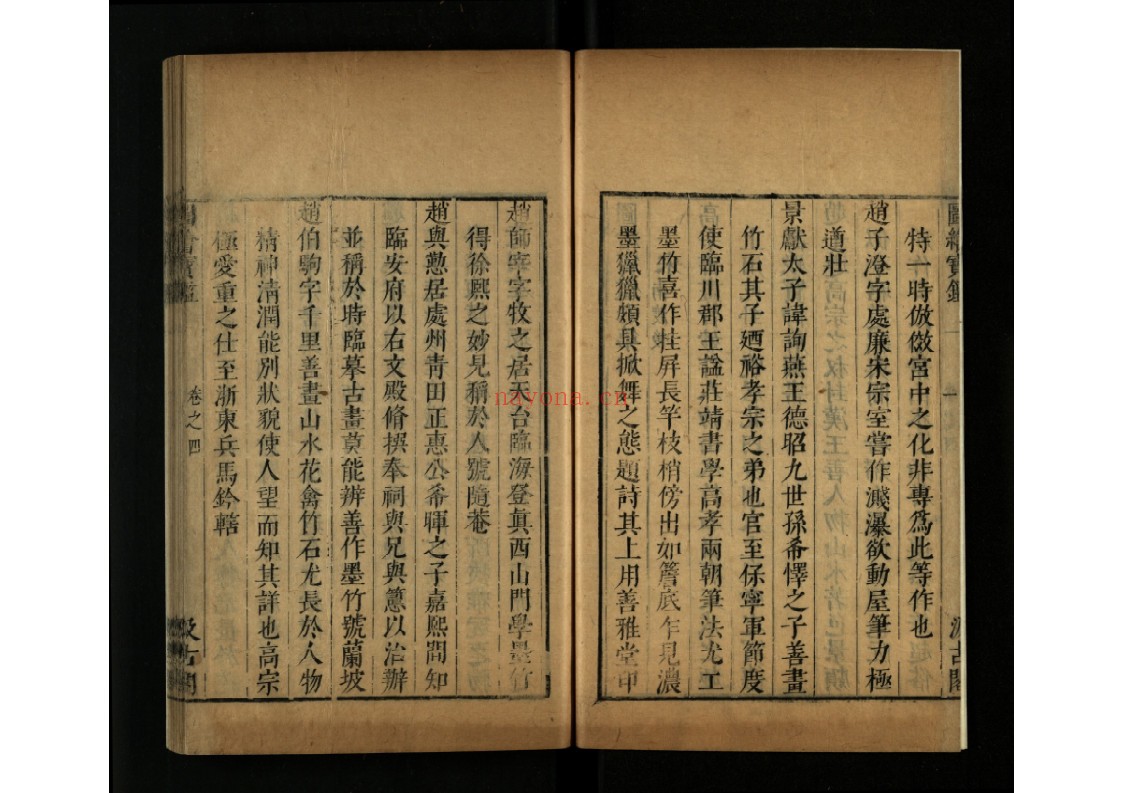 特一時倣傚宮中之化非專爲此等作也
趙子澄字處廉宋宗室嘗作濺瀑欲動屋筆力極
遒壯
景獻太子諱詢燕王德昭九世孫希懌之子善畫
竹石其子廼裕孝宗之弟也官至保寧軍節度
使臨川郡王謚莊靖書學高孝兩朝筆法尤工
墨竹喜作挂屏長竿枝梢傍出如簷底乍見濃
墨獵獵頗具掀舞之態題詩其上用善雅堂印
趙師宰字牧之居天台臨海登眞西山門學墨竹
得徐熙之妙見稱於人號隨菴
趙與懃居處州青田正惠公希暉之子嘉熙間知
臨安府以右文殿脩撰奉祠與兄與𥲅以治辦
並稱於時臨摹古畫莫能辨善作墨竹號蘭坡
趙伯駒字千里善畫山水花禽竹石尤長於人物
精神清潤能別狀貌使人望而知其詳也高宗
極愛重之仕至浙東兵馬鈐轄
卷之四
汲古閣
navona.cn